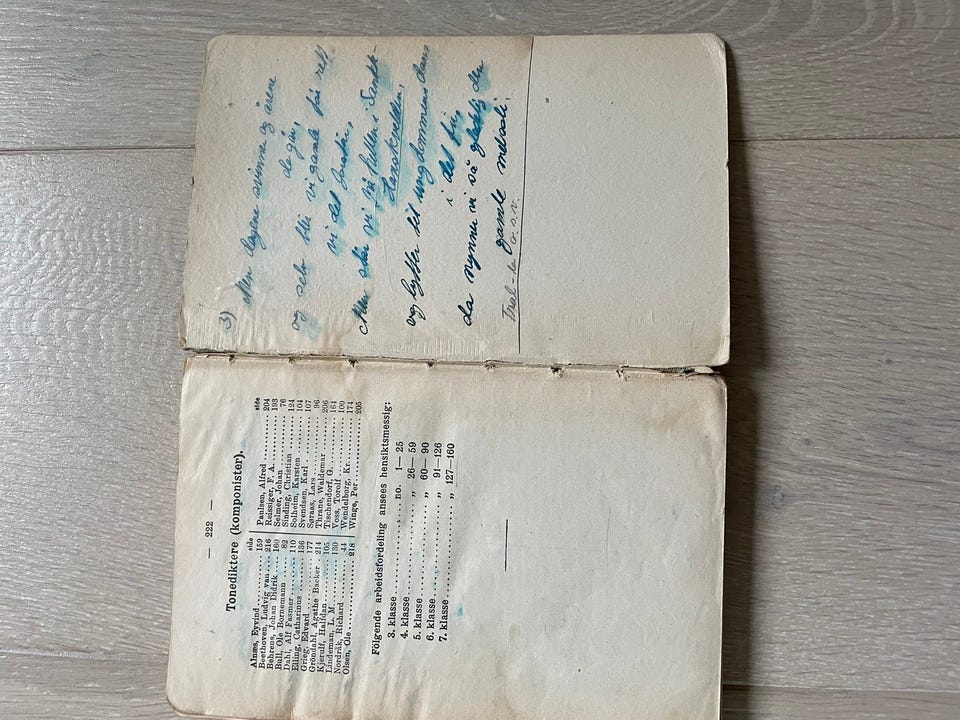 — 222 —
Tonediktere (komponister).
side
Alnæs, Eyvind ........ 159
Beethoven, Ludvig van .. 216
Behrens, Johan Didrik .. 160
Bull, Ole Bornemann .... 82
Dahl, Alf Fasmer ....... 110
Elling, Catharinus ...... 136
Grieg, Edvard .......... 177
Gröndahl, Agathe Backer . 214
Kjerulf, Halfdan ........ 105
Lindeman, L. M. ........ 130
Nordråk, Richard ....... 44
Olsen, Ole ............. 218
side
Paulsen, Alfred ......... 204
Reissiger, F. A. ......... 193
Selmer, Johan .......... 76
Sinding, Christian ...... 124
Solheim, Karsten ....... 104
Svendsen, Karl ......... 107
Søraas, Lars ........... 96
Thrane, Waldemar ...... 206
Tischendorf, G. ......... 164
Voss, Torolf ............ 100
Wendelborg, Kr. ........ 174
Winge, Per ............. 205
Følgende arbeidsfordeling ansees hensiktsmessig:
3. klasse .............. no. 1— 25
4. klasse .............. „ 26— 59
5. klasse .............. „ 60— 90
6. klasse .............. „ 91—126
7. klasse .............. „ 127—160
3) Men dagene svinna og årene
de går,
og selv blir vi gamle før rett
vi det forstår,
Men når vi på kvelden i Sankt-
Hanskvelden,
og lytter til ungdommens dans
i det fri,
da nynner vi så gladelig den
gamle melodi.
Tral-la o.s.v.